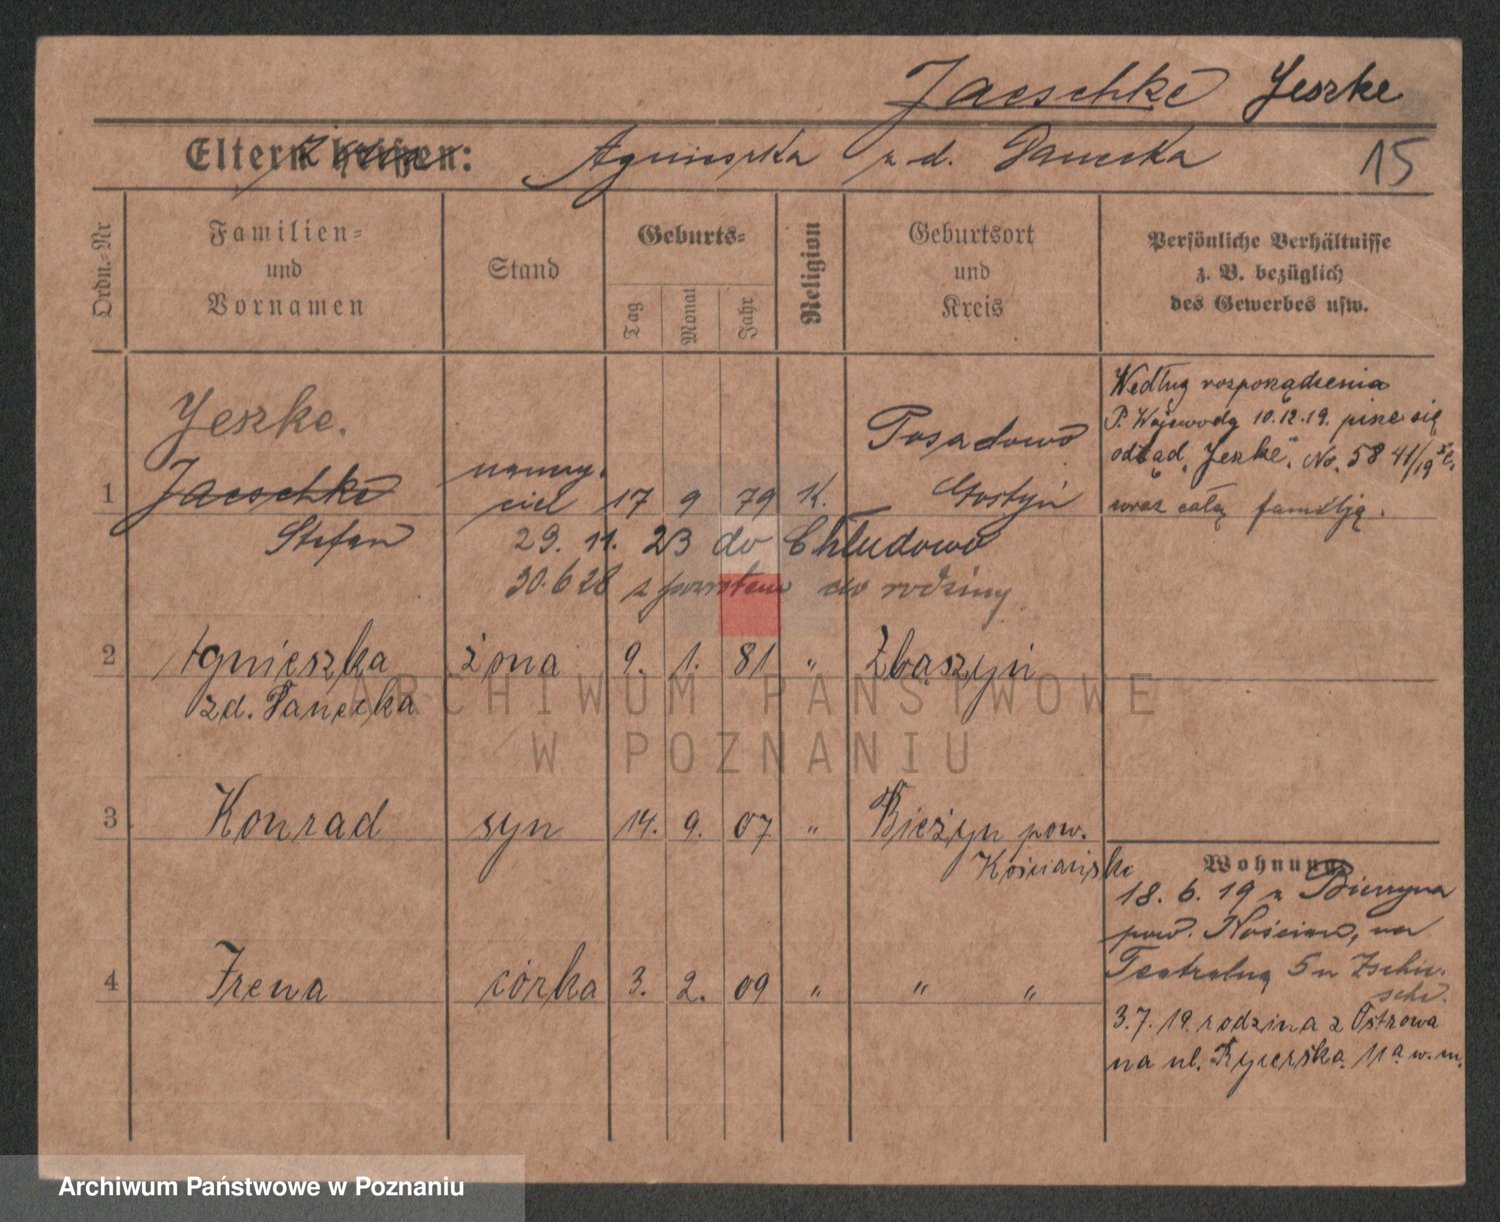 Jaeschke Jeszke
Eltern heißen: Agnieszka z d. Panecka 15
Ordn.-Nr
Familien-
und
Vornamen
Stand
Geburts-
Tag
Monat
Jahr
Religion
Geburtsort
und
Kreis
Persönliche Verhältnisse
z. B. bezüglich
des Gewerbes usw.
Jeszke.
1 Jaeschke nauczy-
ciel 17 9 79 K. Posadowo
Gostyń
Stefan
29. 11. 23 do Chludowo
30.6 28 z powrotem do rodziny
Według rozporządzenia
P. Wojewody 10.12.19. pisze się
odtąd „Jeszke". No. 58 41/19
wraz całą familją.
2 Agnieszka żona 9. 1. 81 " Zbąszyń
zd. Panecka
3 Konrad syn 14. 9. 07 " Bieżyn pow.
Kościański
4 Irena córka 3. 2. 09 " " "
Wohnung
18. 6. 19 z
pow. Kościan, na
Teatralną 5
3.7.19. rodzina z Ostrowa
na ul. Rycerska 11a w. m.
ARCHIWUM PAŃSTWOWE
W POZNANIU
Archiwum Państwowe w Poznaniu